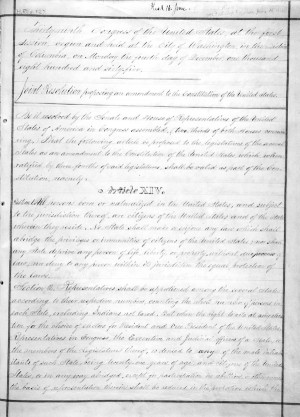 Thirty-ninth Congress of the United States, at the first
Session, begun and held at the City of Washington, in the District
of Columbia, on Monday the fourth day of December, one thousand
eight hundred and sixty-five
Joint Resolution proposing an amendment to the Constitution of the United States.
Be it resolved by the Senate and House of Representatives of the United
States of America in Congress assembled, two thirds of both Houses concurring,
That the following article be proposed to the legislatures of the several
States as an amendment to the Constitution of the United States which when
ratified by three fourths of said legislatures, shall be valid as part of the Con-
stitution, namely
Article XIV.
Section 1. All persons born or naturalized in the United States, and subject
to the jurisdiction thereof, are citizens of the United States and of the State
wherein they reside. No State shall make or enforce any law which shall
abridge the privileges or immunities of citizens of the United States; nor shall
any State deprive any person of life, liberty, or property, without due process of
law; nor deny to any person within its jurisdiction the equal protection of
the laws.
Section 2. Representatives shall be apportioned among the several States
according to their respective numbers, counting the whole number of persons in
each State, excluding Indians not taxed. But when the right to vote at any elec-
tion for the choice of electors for President and Vice President of the United States,
Representatives in Congress, the Executive and Judicial officers of a State, or
the members of the Legislature thereof, is denied to any of the male inhab-
itants of such State, being twenty-one years of age and citizens of the United
States, or in any way abridged, except for participation in rebellion or other
the basis of representation therein shall be reduced in the proportion which the